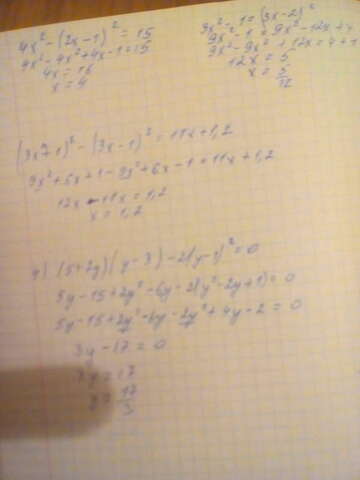 4x² - (2x - 1)² = 15
4x² - 4x² + 4x - 1 = 15
4x = 16
x = 4
9x² - 1 = (3x - 2)²
9x² - 1 = 9x² - 12x + 4
9x² - 9x² + 12x = 4 + 1
12x = 5
x = 5/12
(3x + 1)² - (3x - 1)² = 11x + 1,2
9x² + 6x + 1 - 9x² + 6x - 1 = 11x + 1,2
12x - 11x = 1,2
x = 1,2
(5 + 2y)(y - 3) - 2(y - 1)² = 0
5y - 15 + 2y² - 6y - 2(y² - 2y + 1) = 0
5y - 15 + 2y² - 6y - 2y² + 4y - 2 = 0
3y - 17 = 0
3y = 17
17/3